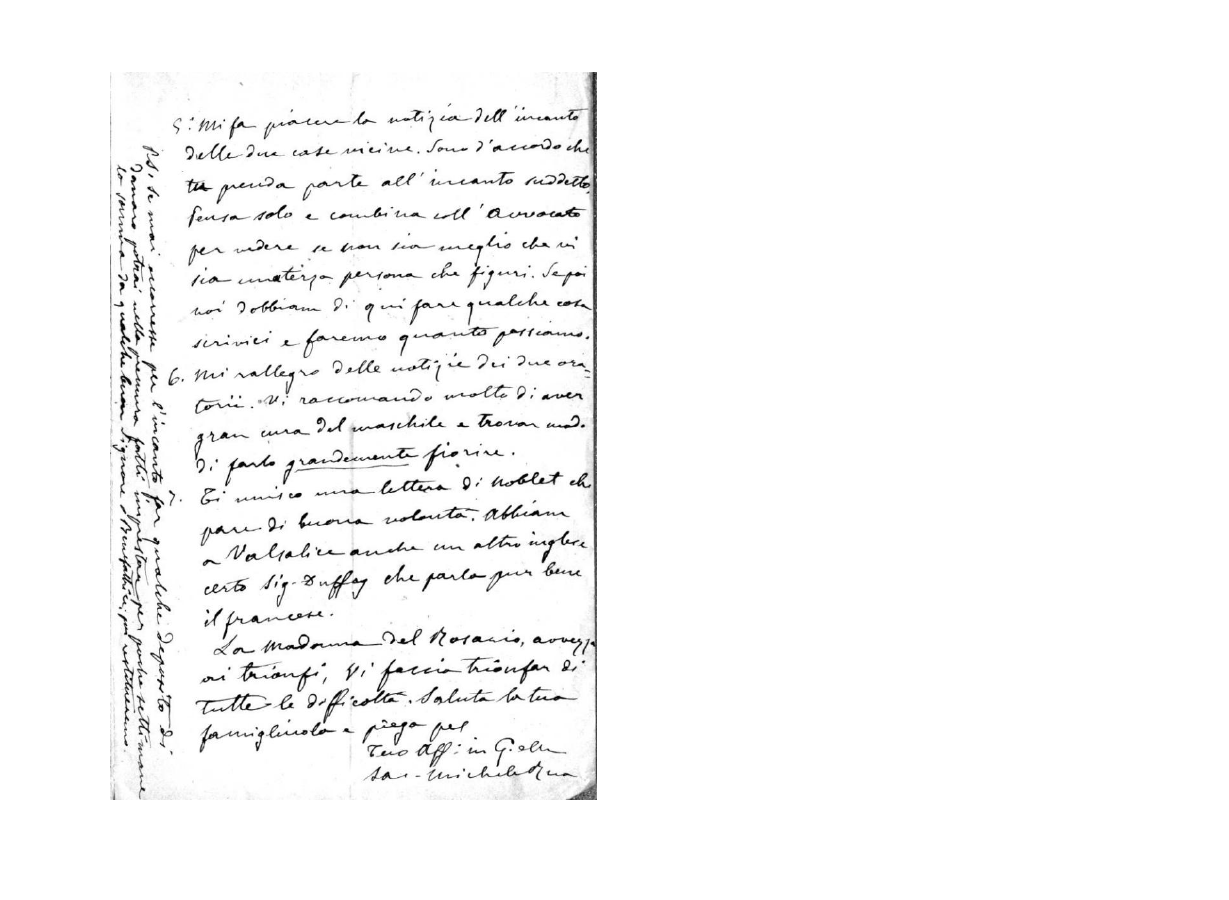 5.° Mi fa piacere la notizia dell'incanto
delle due case vicine. Sono d'accordo che
tu prenda parte all'incanto suddetto.
Pensa solo e combina coll'Avvocato
per vedere se non sia meglio che vi
sia una terza persona che figuri. Se poi
noi dobbiam di qui fare qualche cosa
scrivici e faremo quanto possiamo.
6. Mi rallegro delle notizie dei due ora=
torii. Vi raccomando molto di aver
gran cura del maschile e trovar modo
di farlo grandemente fiorire.
7. Ti unisco una lettera di Noblet che
pare di buona volontà. Abbiam
a Valsalice anche un altro inglese
certo Sig. Duffoy che parla pur bene
il francese.
La Madonna del Rosario, avvezza
ai trionfi, Vi faccia trionfar di
tutte le difficoltà. Saluta la tua
famigliuola e prega pel
Tuo Aff.: in G. e M.
Sac. Michele Rua
P.S. Se mai occorresse per l'incanto far qualche deposito di
danaro potrai nella premura farti imprestar per poche settimane
la somma da qualche buon Signore o Benefattrice, poi restituiremo.